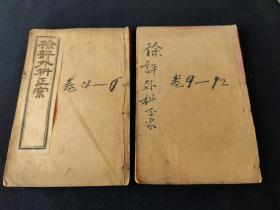 徐評外科正宗
卷4—8
徐评外科正宗
卷9—12